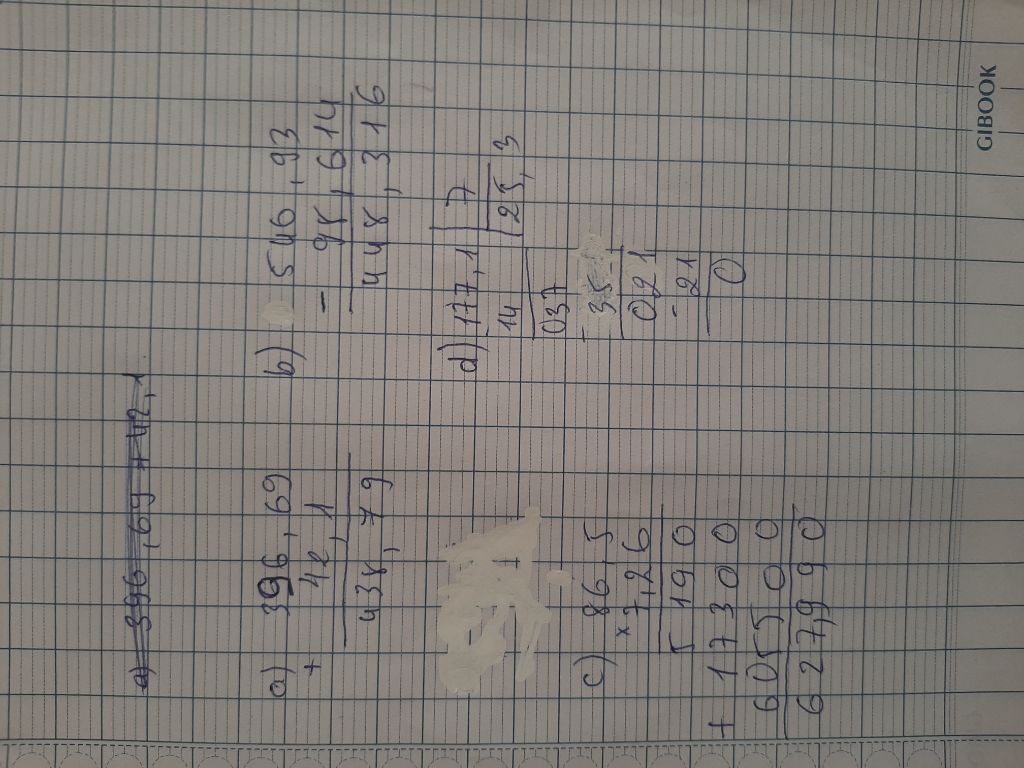 a) 396,69 + 42,1
a) 396,69
+ 42,1
438,79
b) 546,93
- 98,614
448,316
c) 86,5
x 7,26
5190
+ 17300
60550 0
627,990
d) 177,1 | 7
14 | 25,3
037
- 35
021
- 21
0
GIBOOK